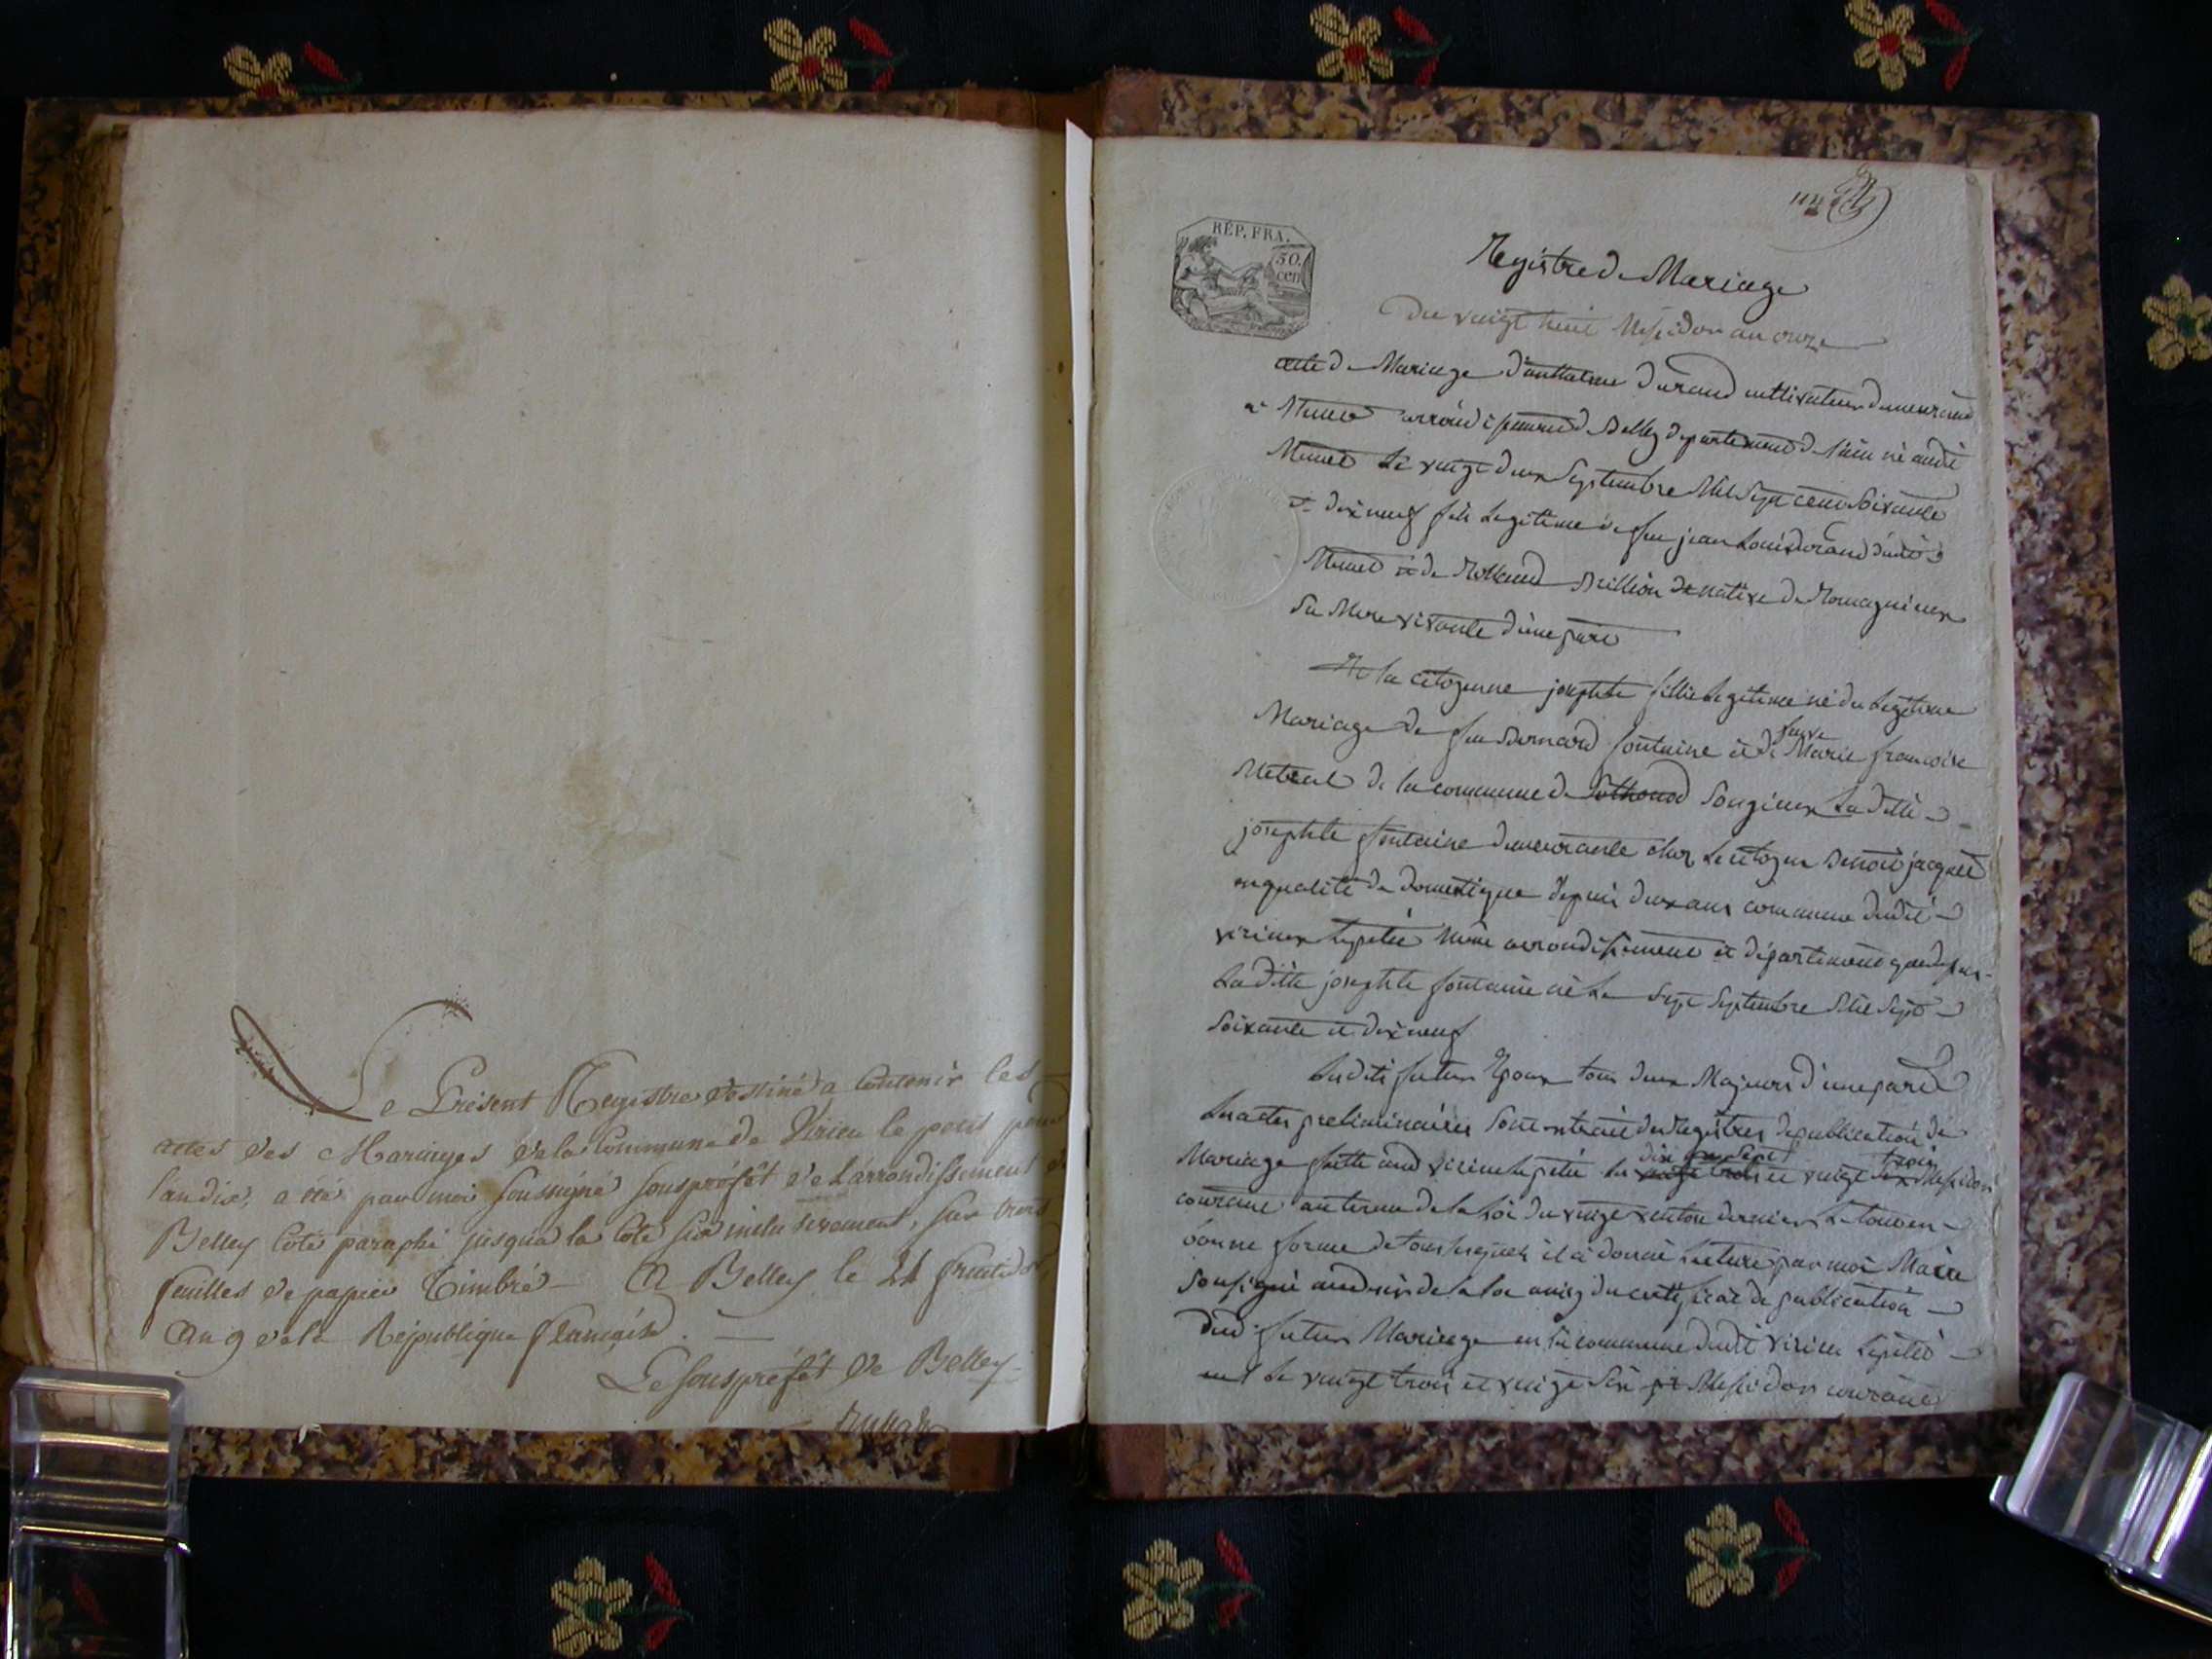 Le Présent Registre destiné a Contenir les
actes des Mariages de la Commune de Virieu le petit pour
l'an dix, a été par moi soussigné sousprêfêt de L'arrondissement de
Belley Coté paraphé jusqu'a la Cote six inclusivement, sur trois
feuilles de papier Timbré - A Belley le 21 fructidor
an 9 de la République française. -
Le sousprefêt de Belley
RÉP. FRA.
50.
cen
Registre de Mariage
Du vingt huit Messidor an onze
acte de Mariage d'anthelme Durand cultivateur demeurant
à Munet arrondissement de Belley departement de l'ain né audit
Munet le vingt deux Septembre Mil Sept cent Soixante
et dix neuf fils Legitime de feu jean Louis durand dudit
Munet et de Brillion native de Romagnieux
Sa Mere vivante d'une part
Et la citoyenne josephte fillie Legitime né du Legitime
Mariage de feu Bernard fontaine et de feue Marie francoise
Metral de la commune de Sothonod Songieux Ladille
josephte fontaine demeurante chez Le citoyen Benoit jacquet
en qualité de domestique depuis deux ans commune dudit
virieux lepetit même arrondissement et département que dessus
La ditte josephte fontaine né Le Sept Septembre Mil Sept
Soixante et dix neuf
Lesdits futurs Epoux tous deux Majeurs d'une part
Les actes preliminaires Sont extrait des Registres de publication de
Mariage faitte aud virieu lepetit les dix Sept et vingt trois Messidor
courant au terme de la Loi du vingt ventose dernier Le tout en
bonne forme de tous lesquels il a donné Lecture par moi Maire
Sousigné aud de la Loi du certificat de publication
dud futur Mariage en la commune dudit virieu Lepetit
Le vingt trois et vingt Six Messidor courant